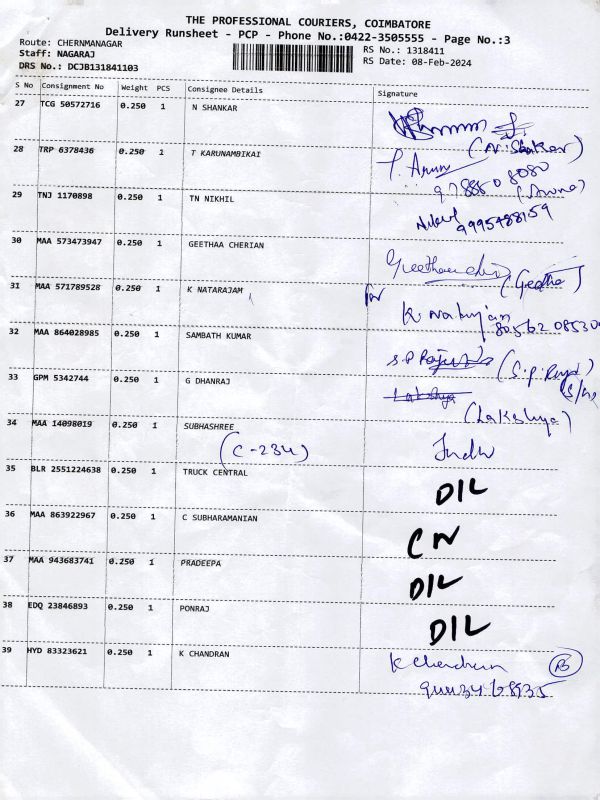 THE PROFESSIONAL COURIERS, COIMBATORE
Delivery Runsheet - PCP - Phone No.:0422-3505555 - Page No.:3
Route: CHERNMANAGAR
RS No.: 1318411
Staff: NAGARAJ
RS Date: 08-Feb-2024
DRS No.: DCJB131841103
S No Consignment No Weight PCS Consignee Details Signature
27 TCG 50572716 0.250 1 N SHANKAR
28 TRP 6378436 0.250 1 T KARUNAMBIKAI T. Arun
97885 08080
29 TNJ 1170898 0.250 1 TN NIKHIL Nikil
9995488159
30 MAA 573473947 0.250 1 GEETHAA CHERIAN (Geetha)
31 MAA 571789528 0.250 1 K NATARAJAM for K Natrajan
80562 08530
32 MAA 864028985 0.250 1 SAMBATH KUMAR
33 GPM 5342744 0.250 1 G DHANRAJ Lakshya
(Lakshya)
34 MAA 14098019 0.250 1 SUBHASHREE Indu
(C-234)
35 BLR 2551224638 0.250 1 TRUCK CENTRAL DIL
36 MAA 863922967 0.250 1 C SUBHARAMANIAN CN
37 MAA 943683741 0.250 1 PRADEEPA DIL
38 EDQ 23846893 0.250 1 PONRAJ DIL
39 HYD 83323621 0.250 1 K CHANDRAN K Chandran